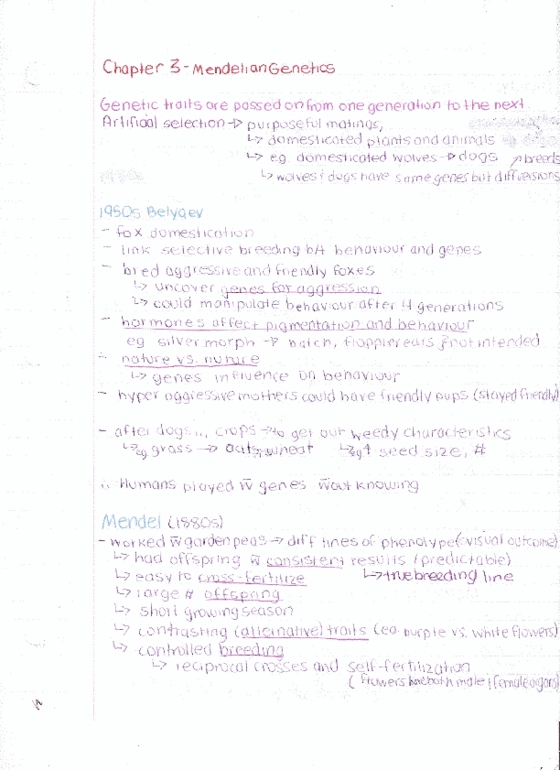 Chapter 3 - Mendelian Genetics
Genetic traits are passed on from one generation to the next
Artificial selection → purposeful matings,
↳ domesticated plants and animals
↳ eg. domesticated wolves → dogs ↗ breeds
↳ wolves & dogs have same genes but diff versions
1950s Belyaev
- fox domestication
- link selective breeding b/t behaviour and genes
- bred aggressive and friendly foxes
↳ uncover genes for aggression
↳ could manipulate behaviour after 4 generations
- hormones affect pigmentation and behaviour
eg silver morph → patch, floppier ears & not intended
- nature vs. nurture
↳ genes influence on behaviour
- hyper aggressive mothers could have friendly pups (stayed friendly)
- after dogs... crops → to get out weedy characteristics
↳ eg grass → oats, wheat ↳ eg ↑ seed size, #
∴ Humans played w̄ genes w̄out knowing
Mendel (1880s)
- worked w̄ garden peas → diff lines of phenotype (visual outcome)
↳ had offspring w̄ consistent results (predictable)
↳ easy to cross-fertilize ↳ true breeding line
↳ large # offspring
↳ short growing season
↳ contrasting (alternative) traits (eg. purple vs. white flowers)
↳ controlled breeding
↳ reciprocal crosses and self-fertilization
(flowers have both male & female organs)